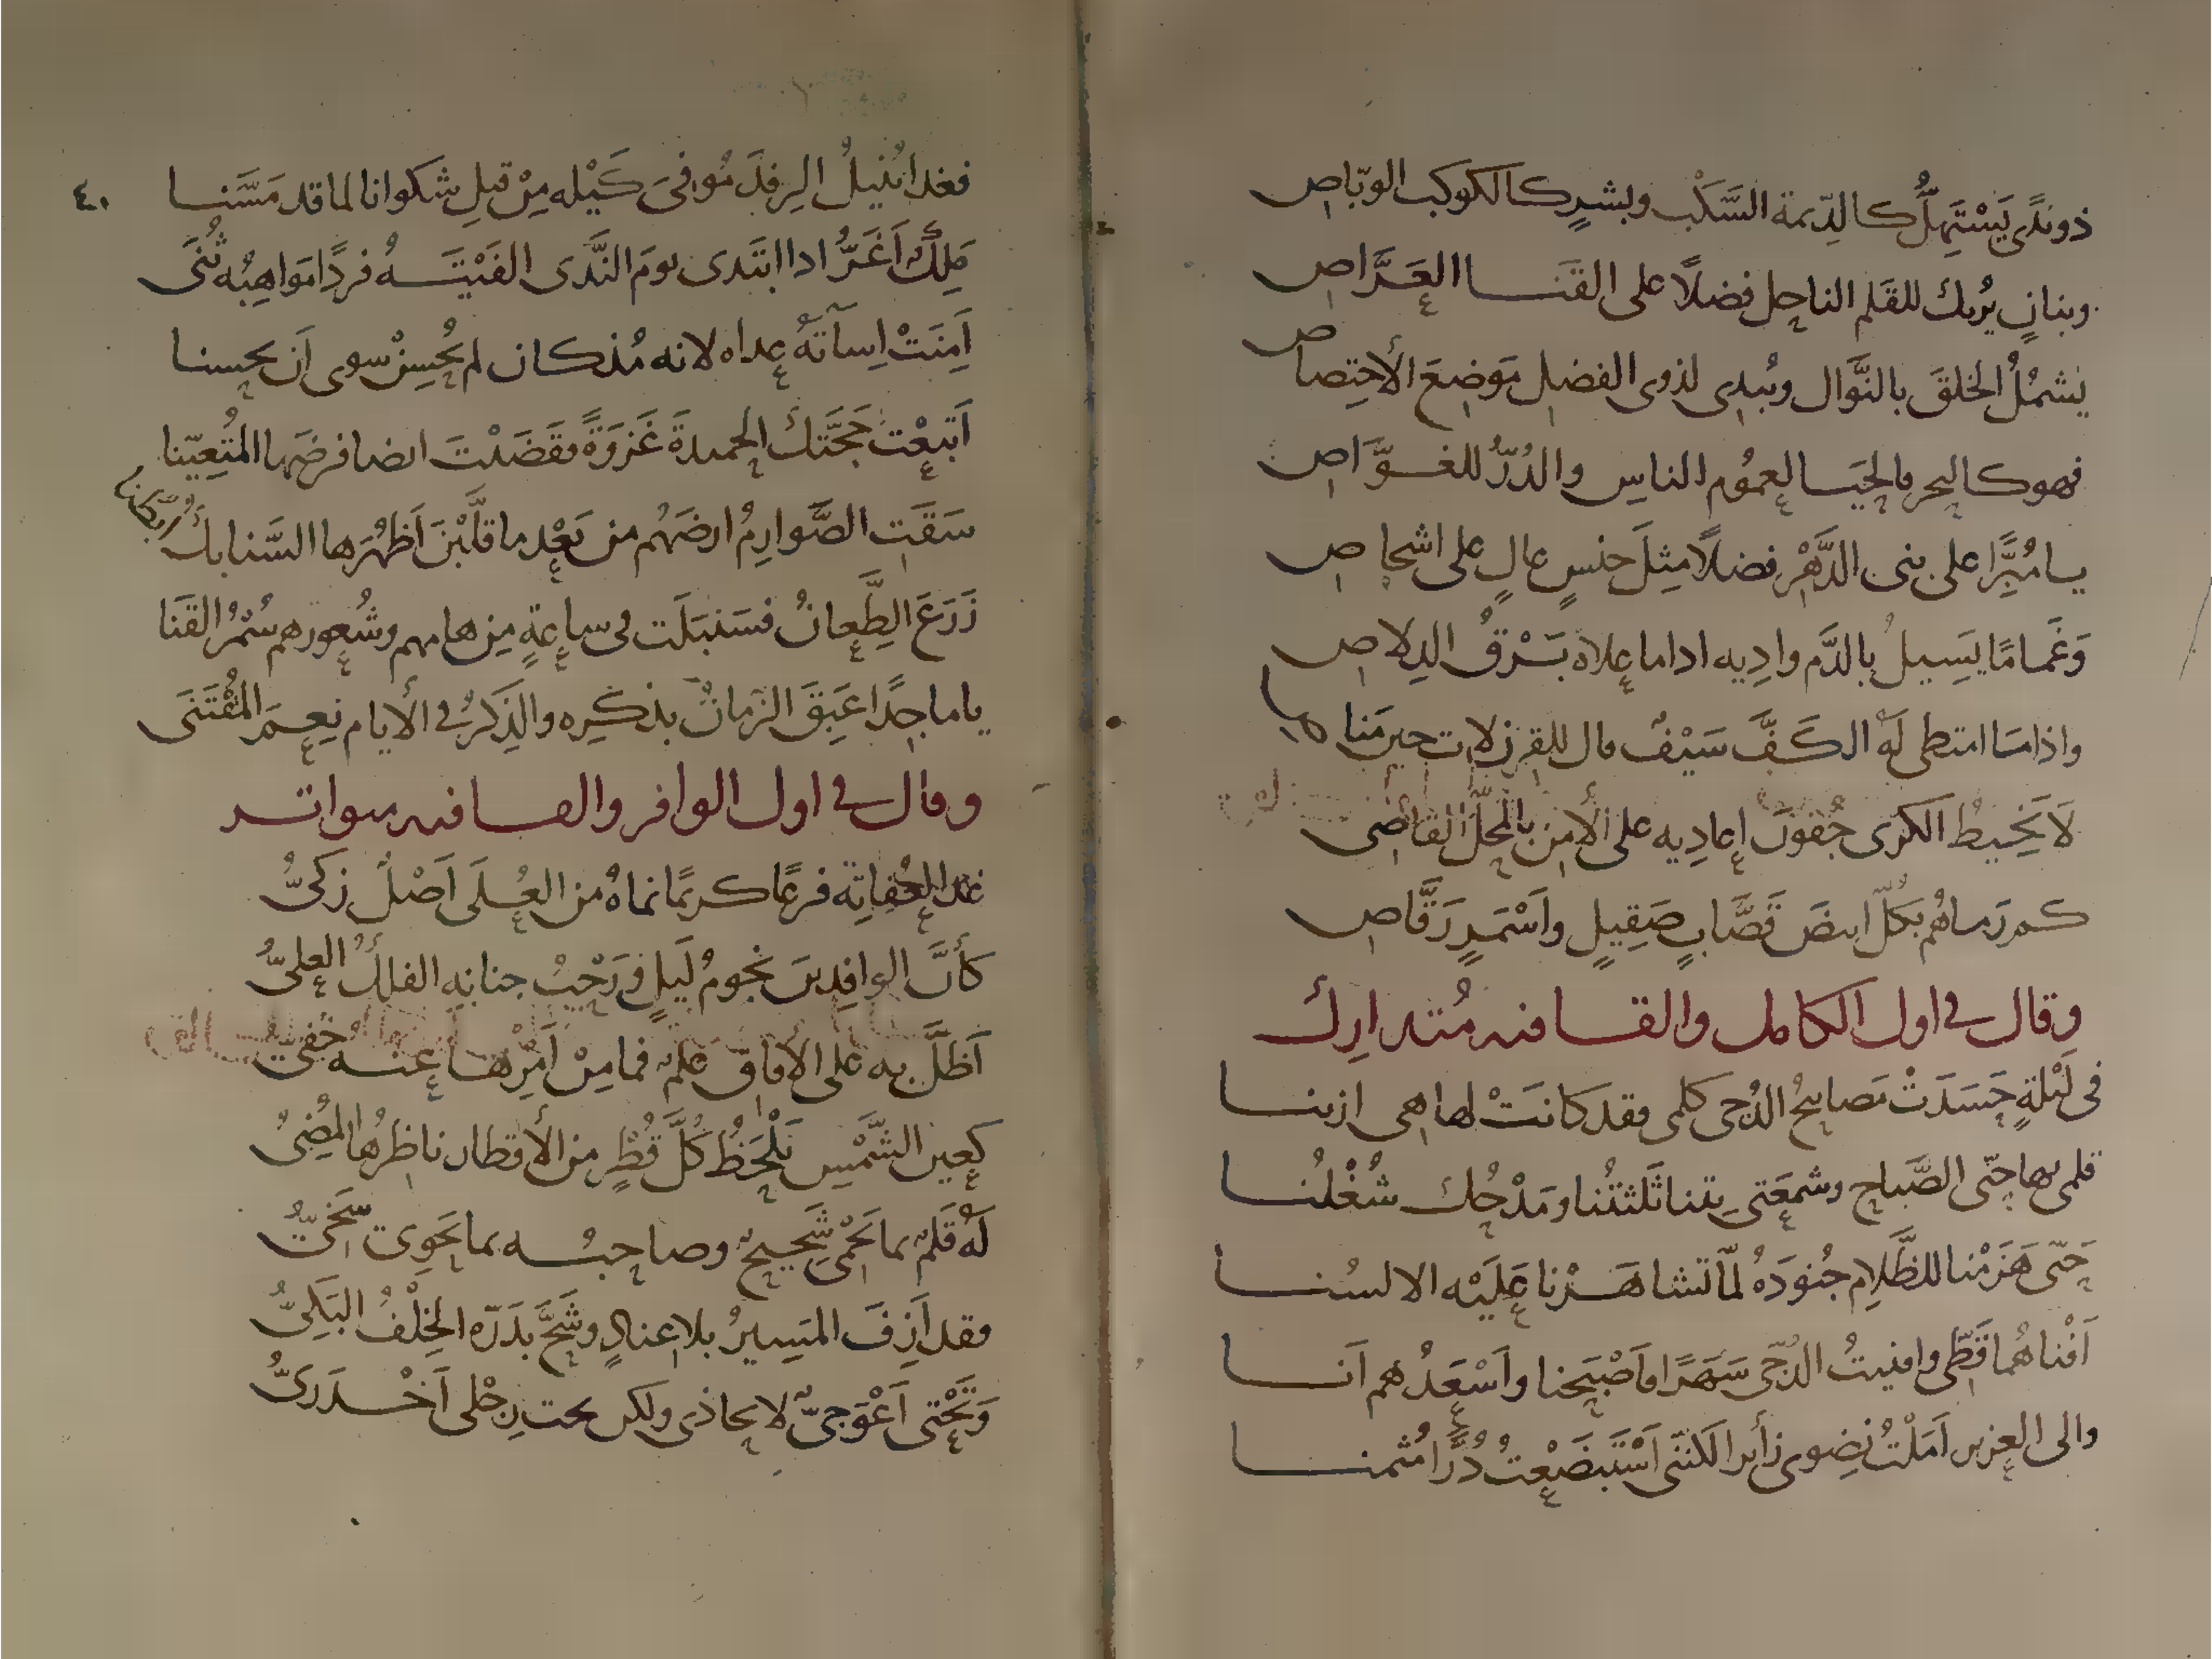 ذو ندًى يَسْتَهِلُّ كالدّيمة السَّكْب وبشرٍ كالكوكب الوبّاص
وبنانٍ يُريك للقَلم الناحِل فضلاً على القَنا العَرَّاص
يَشمُلُ الخلقَ بالنَّوال ويُبدى لذوى الفضل مَوضِعَ الأختِصاص
فهو كالبحر والحَيا لعمُوم الناسِ والدُرّ للغوَّاص
يا مُبِرًّا على بنى الدَّهْر فضلاً مِثلَ جنسٍ عالٍ على اشخاص
وَغَمامًا يَسِيلُ بالدَّم وادِيه اذا ما علاه بَرْقُ الدِلاص
واذا ما امتطى لَهُ الكَفَّ سَيْفٌ قال للقِرن لات حين مَناص
لَا يَخِيطُ الكرى جُفونَ اعادِيه على الأمن بالمحلّ القاصى
كم رَماهُم بكلّ ابيضَ قَصَّابٍ صَقِيلٍ واَسْمَرٍ رَقَّاص
وقال فى اول الكامل والقافيه مُتدارِك
فى لَيْلةٍ حَسَدَتْ مَصابيحُ الدُجى كلمى وقد كانَتْ لها هى ازينا
قلمى بها حتّى الصَّباح وشمعَتى بِتنا ثَلثتُنا ومَدْحُك شُغْلُنا
حَتّى هَزَمْنا للظَّلامِ جُنودَهُ لمّا تشاهَرْنا عَلَيْه الالسُنا
اَفْناهُما قَطّى وافنيتُ الدّجى سَهَرًا فاَصْبَحنا واَسْعَدُهم اَنا
والى العزيز اَمَلْتُ نِضوى زأيرا لكننى اَسْتَبضَعْتُ دُرًّا مُثمنا
٤٠
فغدا يُنيلُ الرِفدَ مُوافىَ كَيْله مِنْ قبلِ شكوانا لما قد مَسَّنا
مَلِكٌ اَغَرُّ اذا ابتَدى يومَ النَّدى الفَيْتَهُ فردًا مَواهِبُه ثُنَى
اَمِنَتْ اِسآتَهُ عداه لانه مُذ كان لم يُحْسِنْ سوى اَن يحسنا
اَتبعْتَ حَجَّتك الحميدةَ غَزوَةً فقَضَيْتَ ايضا فرضَها المُتعيّنا
سَقَتِ الصَّوارِمُ ارضَهُم من بَعْدِ ما قلَّبْنَ اَظهُرَها السَّنابكُ
زَرَعَ الطِّعانُ فسَنبَلَت فى ساعةٍ مِن هامهم وشُعورهم سُمْرُ القَنَا
يا ماجِدًا عَبِقَ الزمانُ بذكرِه والذِكرُ فى الأيام نِعمَ المُقْتَنَى
وقال فى اول الوافر والقافيه متواتر
غدا لعُفاتِه فرعًا كريمًا نماهُ من العُلَى اَصْلٌ زكىُّ
كأنَّ الوافِدينَ نجومُ لَيلٍ ورَحْبُ جنابِه الفلكُ العلىُّ
اَظلَّ به على الأفاق عَلم فما مِنْ اَمْرِها عنه خَفىُّ
كعين الشَّمْسِ تَلْحَظُ كُلَّ قُطْرٍ من الأقطار ناظرُها المُضِىُ
لَهُ قَلَمٌ بما يَحْمى شَحيحٌ وصاحبُه بما يَحوِى سَخىُّ
وقد اَزِفَ المَسِيرُ بلا عنادٍ وشَحَّ بدَرّه الخِلْفُ البَكىُّ
وَتَحْتى اَعْوَجىٌّ لا يحاذى ولكن تحت رِجْلى اَخْدَرىُّ